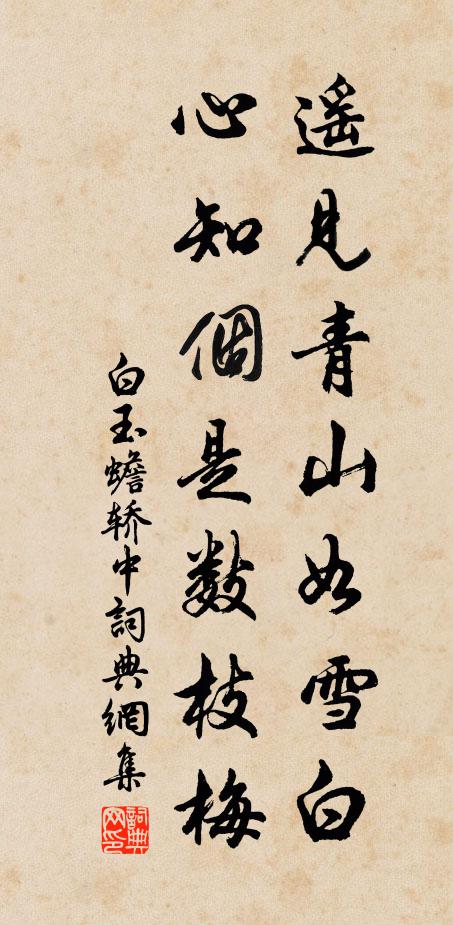 遥見青山如雪白
心知個是數枝梅
白玉蟾轿中詞典網集
詞典網印